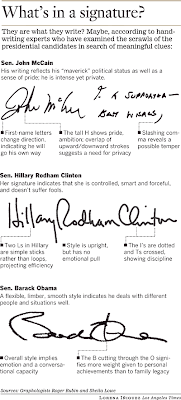 What's in a signature?
They are what they write? Maybe, according to hand-
writing experts who have examined the scrawls of the
presidential candidates in search of meaningful clues:
Sen. John McCain
His writing reflects his "maverick" political status as well as a
sense of pride; he is yet intensely private.
John McCain
To a supporter—
Best wishes,
First-name letters
change direction,
indicating he will
go his own way
The tall H shows pride,
ambition; overlap of
upward/downward strokes
suggests a need for privacy
Slashing com-
ma reveals a
possible temper
Sen. Hillary Rodham Clinton
Her signature indicates that she is controlled, smart and forceful,
and doesn't suffer fools.
Hillary Rodham Clinton
Two Ls in Hillary
are simple sticks
rather than loops,
projecting efficiency
Style is upright,
but has no
emotional pull
The I's are dotted
and Ts crossed,
showing discipline
Sen. Barack Obama
A flexible, limber, smooth style indicates he deals with different
people and situations well.
Barack Obama
Overall style implies
emotion and a conversa-
tional capacity
The B cutting through the O signi-
fies more weight given to personal
achievements than to family legacy
Sources: Graphologists Roger Rubin and Sheila Lowe
Lorena Iñiguez Los Angeles Times